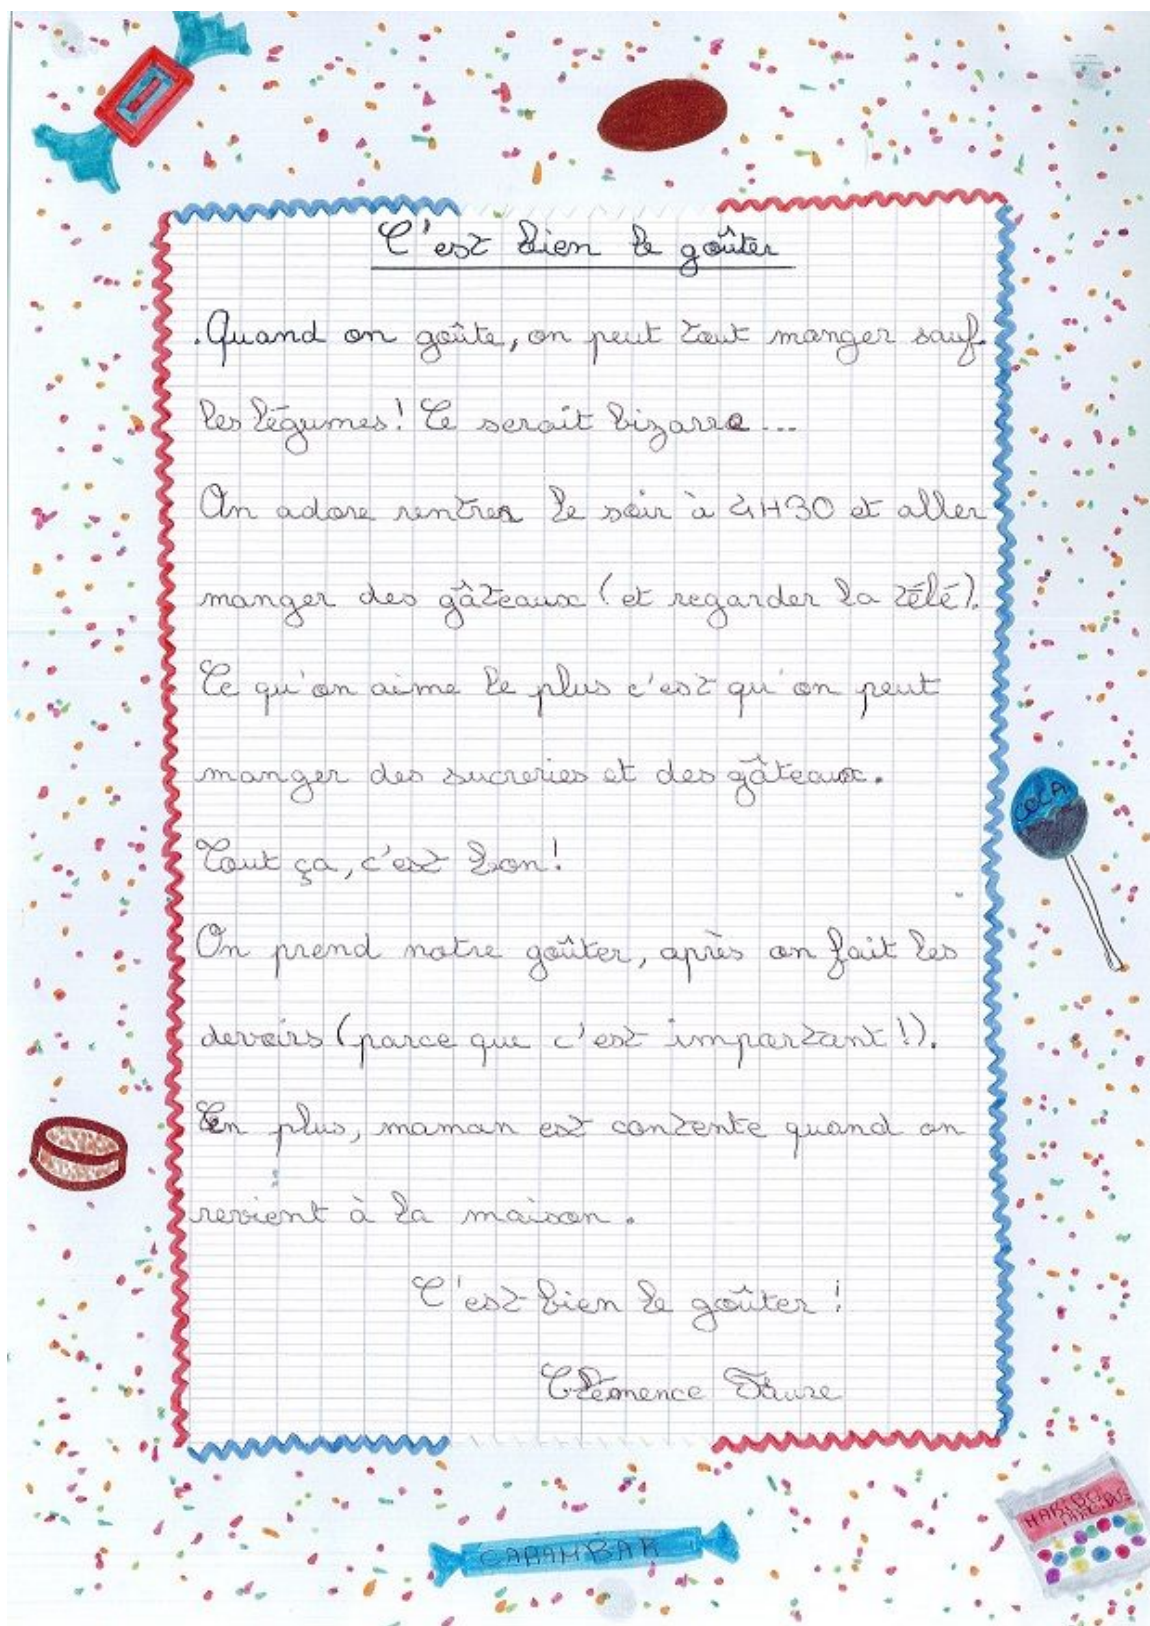 C'est bien le goûter
.Quand on goûte, on peut tout manger sauf
les légumes! Ce serait bizarre...
On adore rentrer le soir à 4H30 et aller
manger des gâteaux (et regarder la télé).
Ce qu'on aime le plus c'est qu'on peut
manger des sucreries et des gâteaux.
Tout ça, c'est bon!
On prend notre goûter, après on fait les
devoirs (parce que c'est important!).
En plus, maman est contente quand on
revient à la maison.
C'est bien le goûter!
Clémence Faure
COCA
HARIBO
CARAMBAR